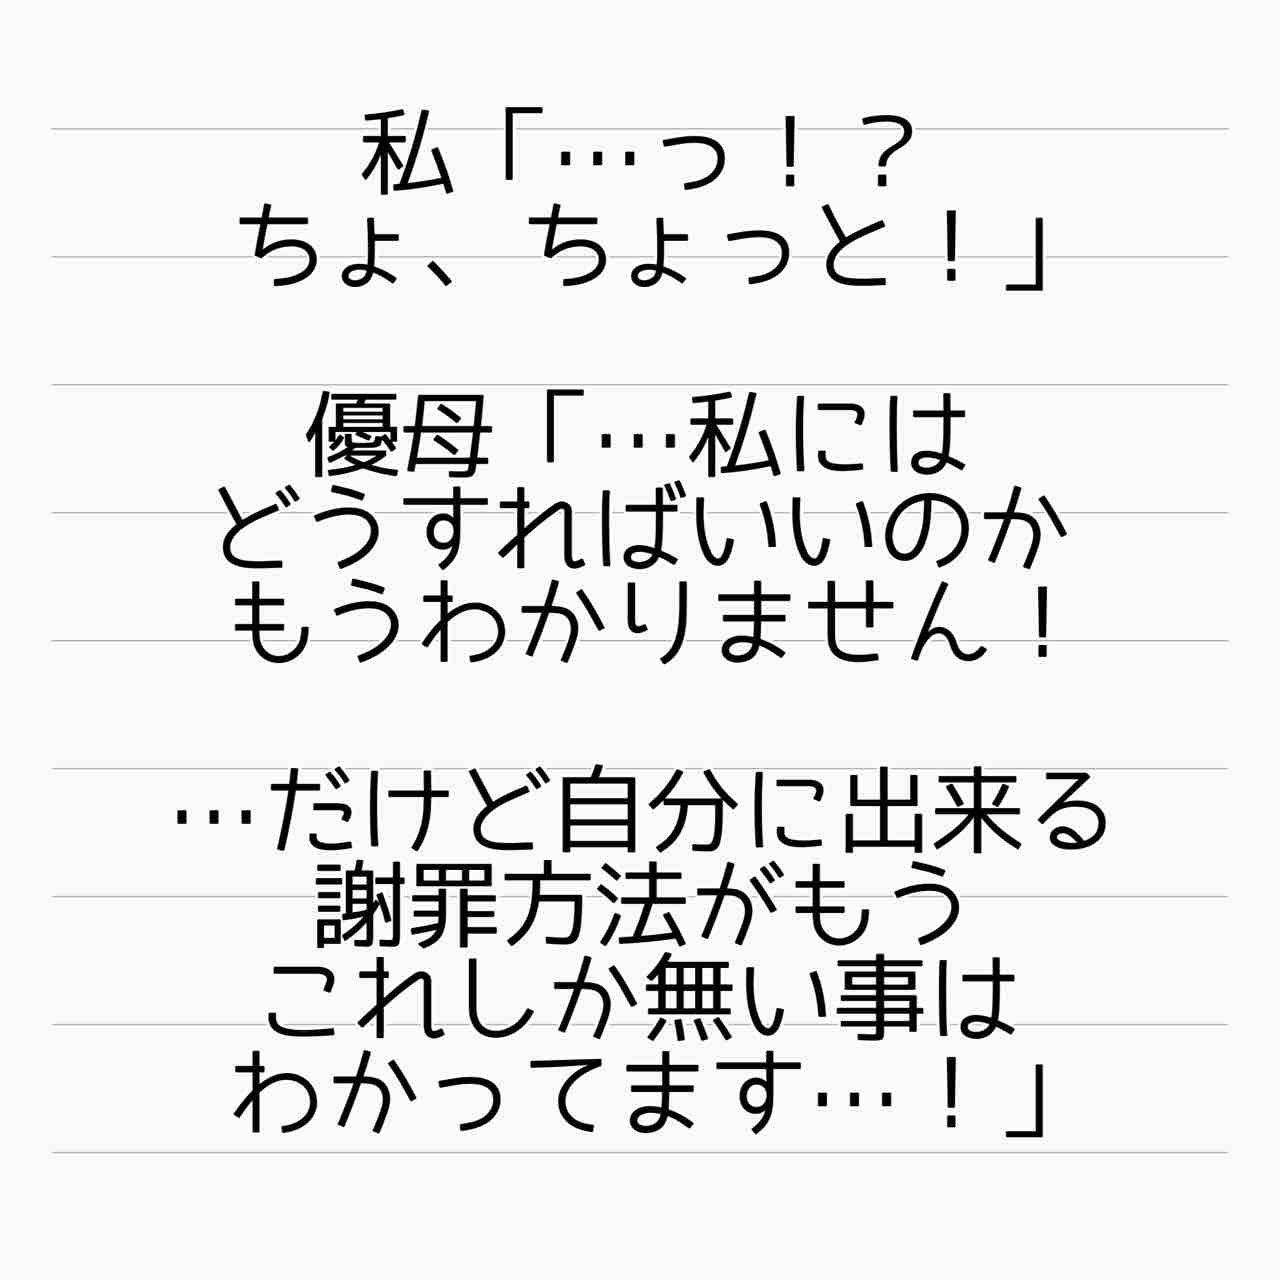 私「…っ！？
ちょ、ちょっと！」
優母「…私には
どうすればいいのか
もうわかりません！
…だけど自分に出来る
謝罪方法がもう
これしか無い事は
わかってます…！」